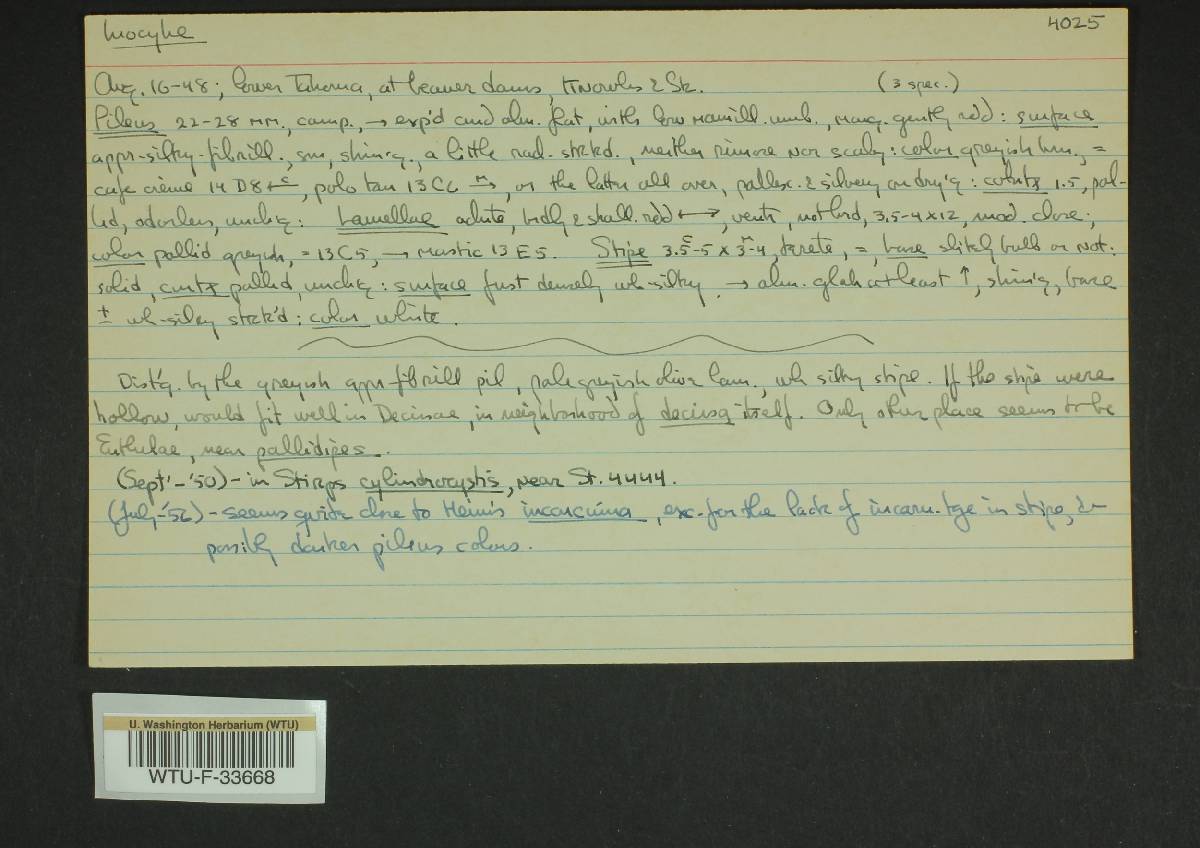 Inocybe
4025
Aug. 16-48; lower Tahoma, at beaver dams, Knowles & Stz. (3 spec.)
Pileus 22-28 mm., camp., → exp'd and alm. flat, with low mamill. umb., marg. gently rdd: surface
appr-silky-fibrill., sm, shin'g, a little rad. strkd., neither rimose nor scaly: color greyish brn., =
cafe crème 14 D8 ←c→, polo tan 13C6 m→, or the latter all over, pallesc. & silvery on dry'g: context 1.5, pal-
lid, odorless, unchg: Lamellae adnate, bdly & shall. rdd ←→, ventr., not brd, 3.5-4 x 12, mod. close;
color pallid greyish, = 13C5, → mastic 13 E5. Stipe 3.5-5 x 3-4, terete, =, base slitely bulb or not:
solid, contx pallid, unchg: surface first densely wh-silky → alm. glab at least ↑, shin'g, base
± wh-silky strk'd: color white.
Dist'g. by the greyish appr-fibrill pil, pale greyish olive lam., wh silky stipe. If the stipe were
hollow, would fit well in Decissae, in neighborhood of decissa itself. Only other place seems to be
Euthelae, near pallidipes.
(Sept'-'50) - in Stirps cylindrocystis, near St. 4444.
(July-'52) - seems quite close to Heim's incarcerina, exc. for the lack of incarn. tge in stipe, &
possibly darker pileus colors.
U. Washington Herbarium (WTU)
WTU-F-33668